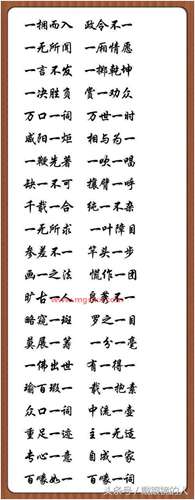 一拥而入 政令不一
一无所闻 一厢情愿
一言不发 一掷乾坤
一决胜负 赏一劝众
万口一词 万世一时
咸阳一炬 相与为一
一鞭先著 一吹一唱
缺一不可 攘臂一呼
千载一合 纯一不杂
一无所求 一叶障目
参差不一 竿头一步
画一之法 慌作一团
旷古一人 良莠不一
暗窥一斑 罗之一目
莫展一筹 一分一毫
一佛出世 有一得一
瑜百瑕一 载一抱素
众口一词 中流一壶
重足一迹 主一无适
专心一意 自成一家
百喙如一 百喙一词
头条号／